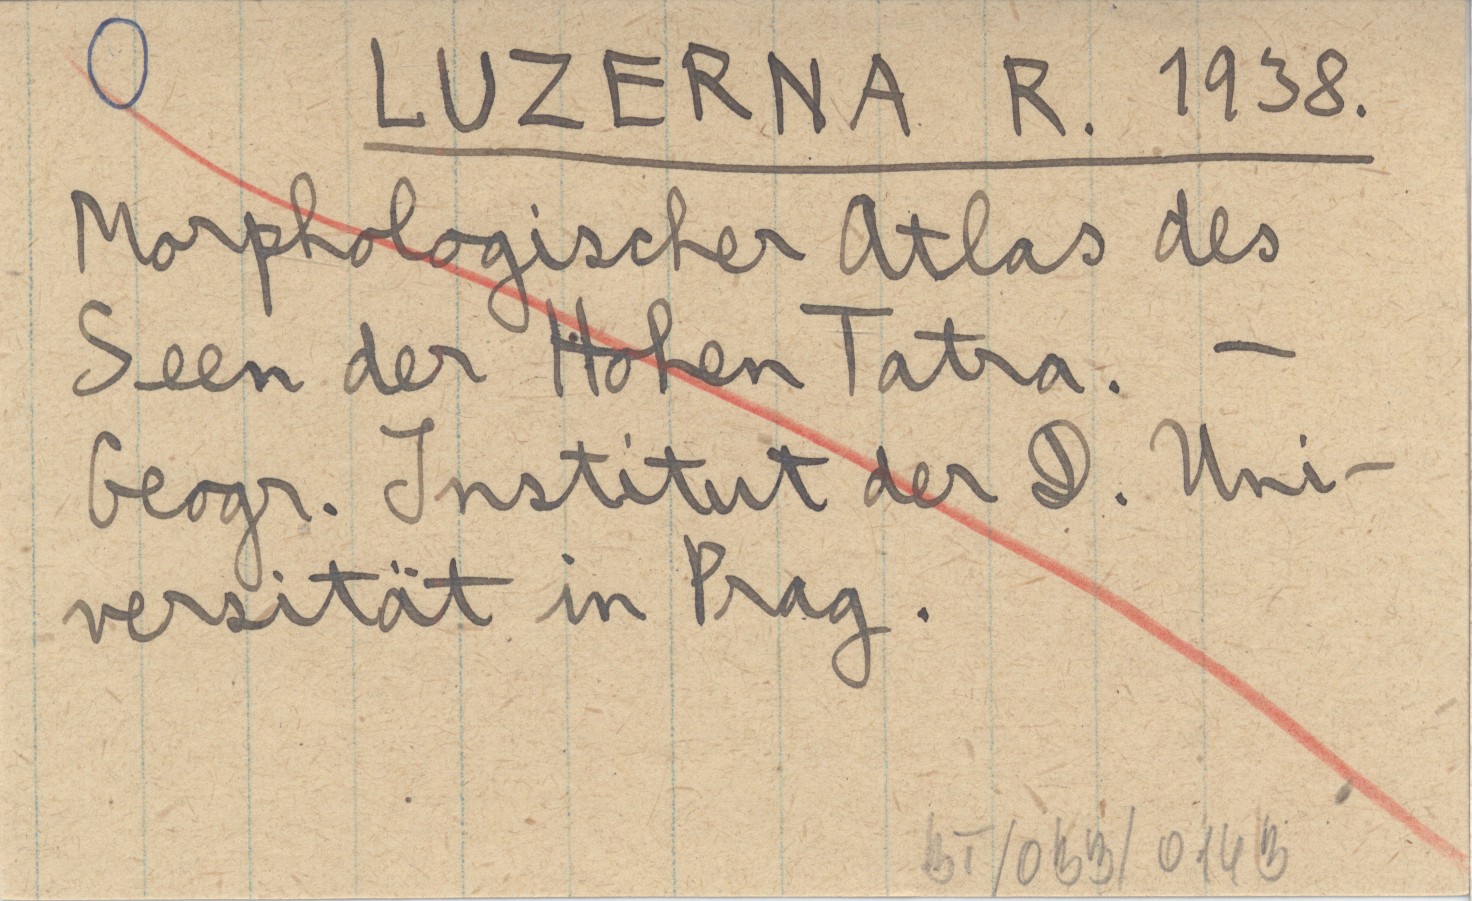 O
LUZERNA R. 1938.
Morphologischer Atlas des
Seen der Hohen Tatra. —
Geogr. Institut der D. Uni-
versität in Prag.